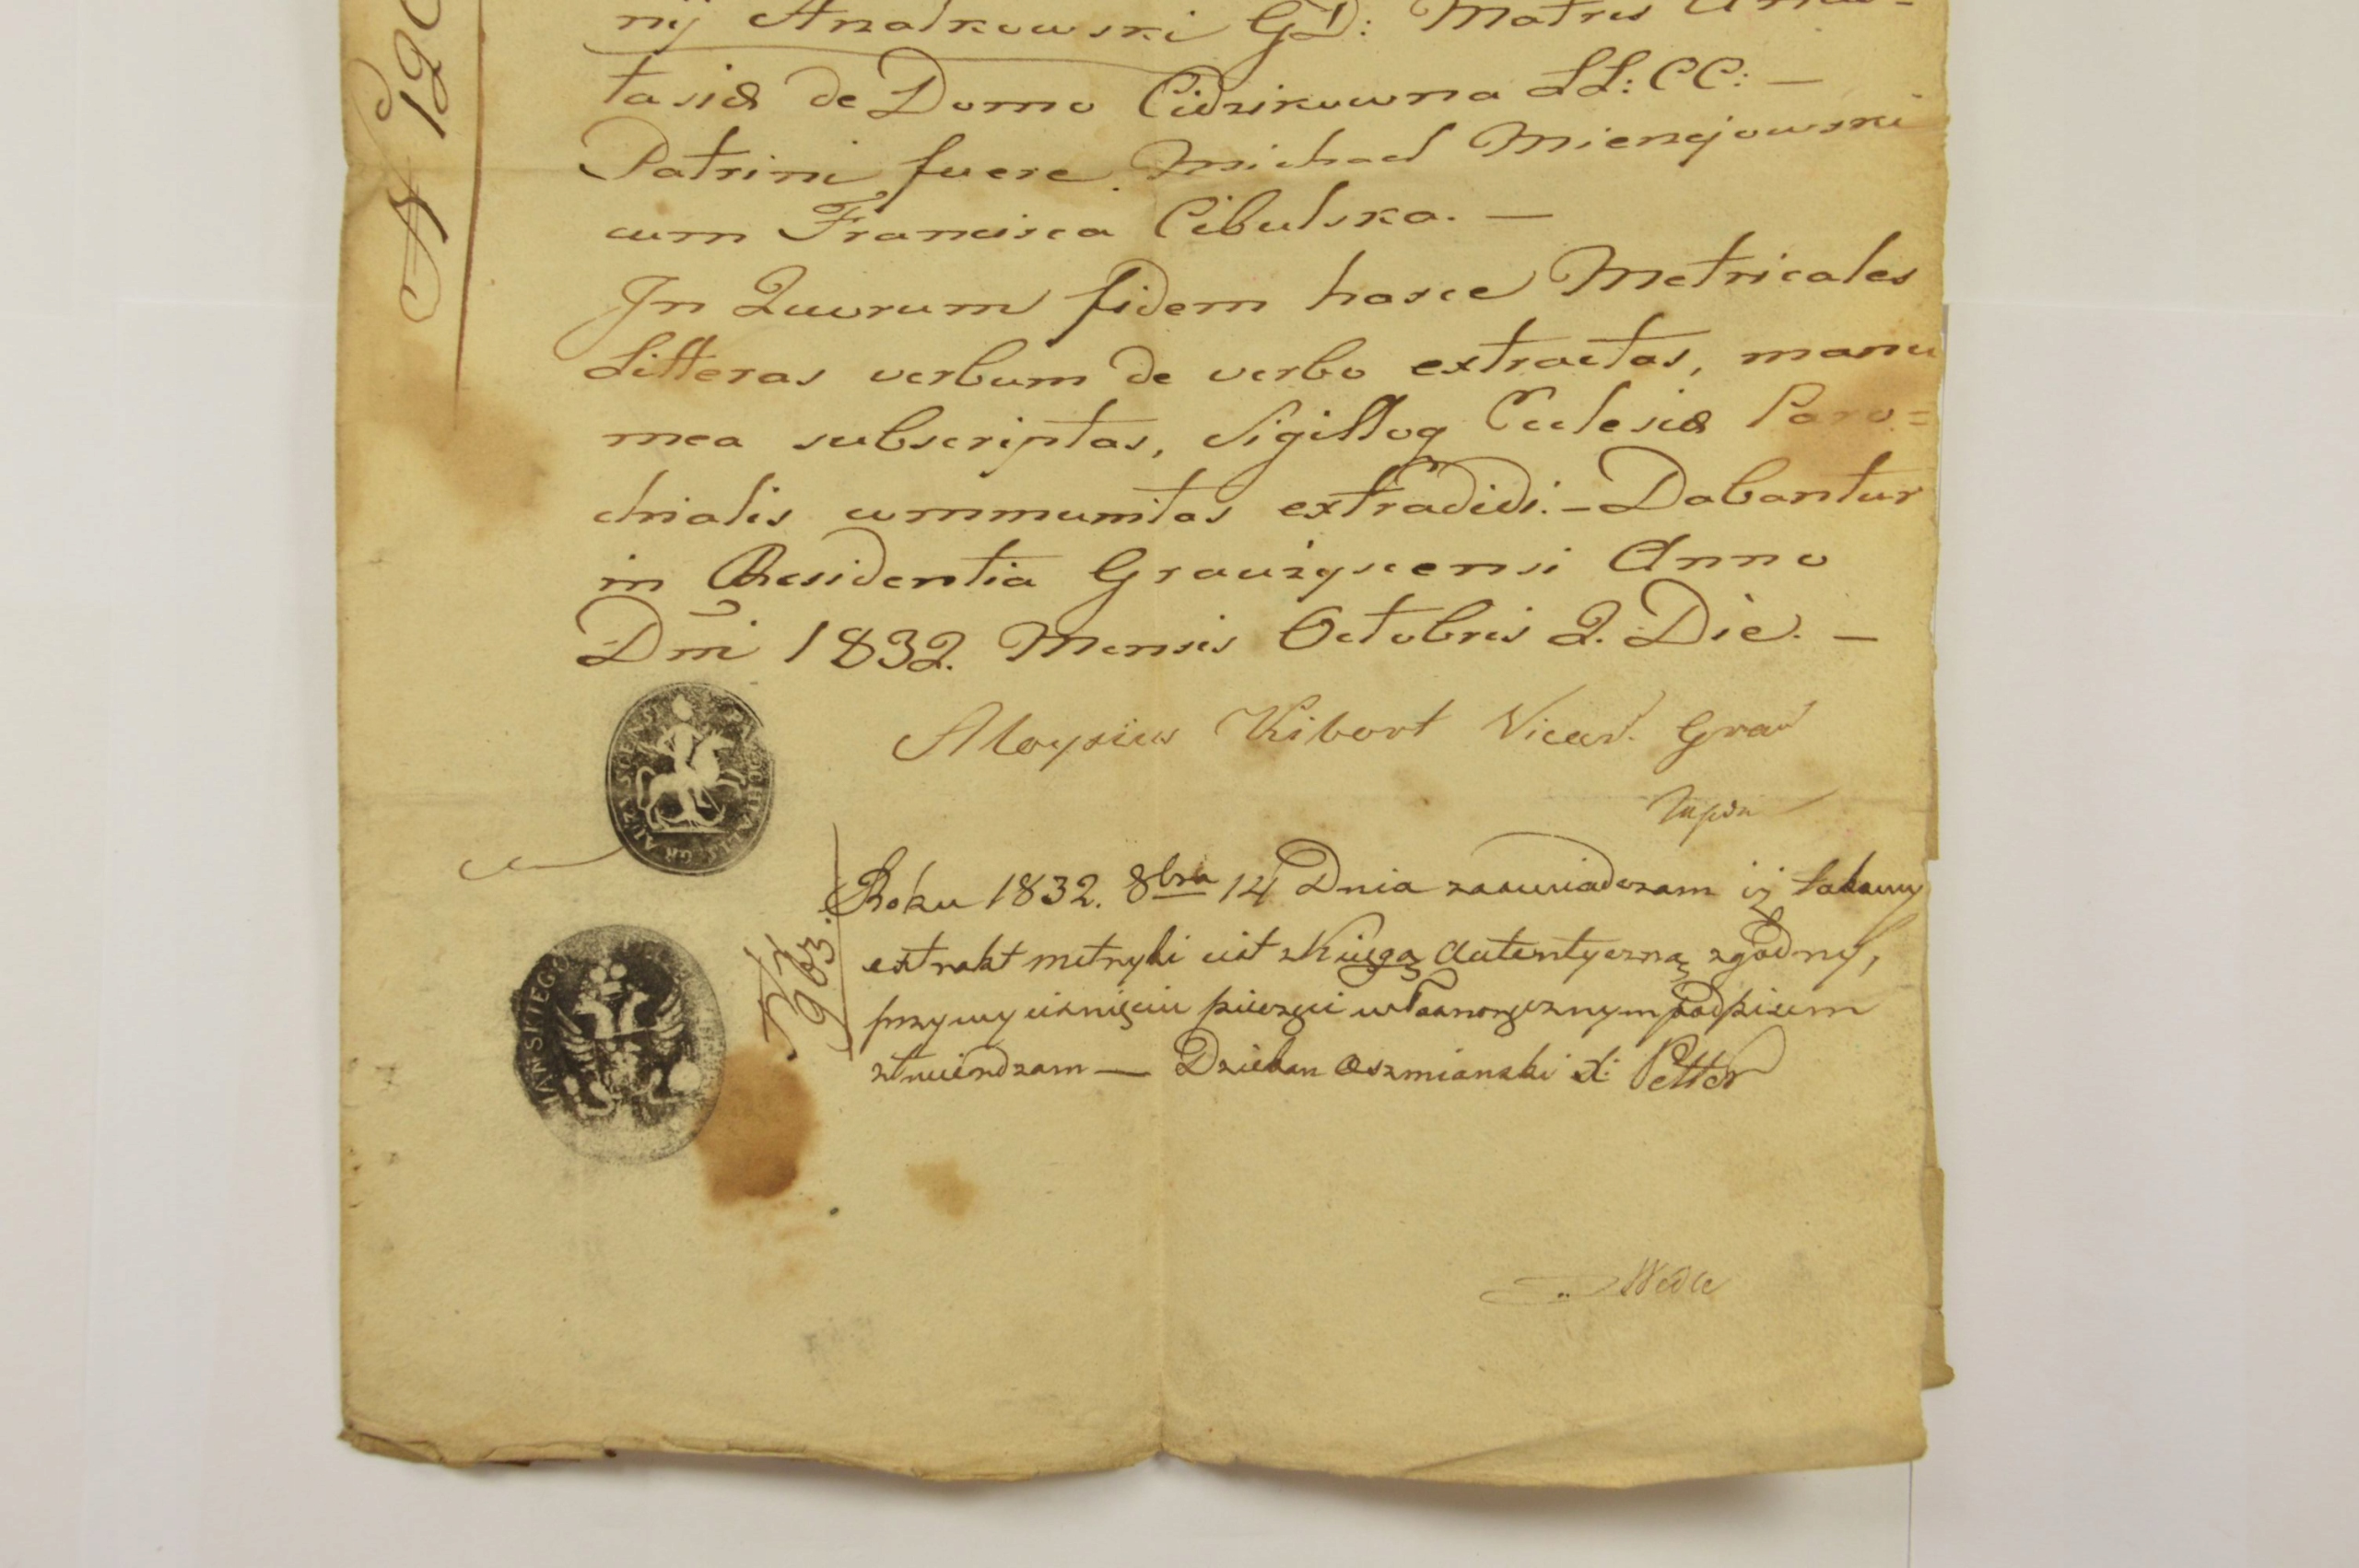 nij Analkowski GD: Matris
tasiæ de Domo Cidzikowna LL: CC: —
Patrini fuere Michael Mienejowski
cum Francisca Cibulska. —
In Quorum fidem hasce Metricales
Litteras verbum de verbo extractas, manu
mea subscriptas, Sigilloq Eccleseiæ Paro=
chialis communitas extradidi. – Dabantur
in Residentia Grauzyscensi Anno
Dm̄i 1832. Mensis Octobris 2. Die. —
Aloysius Kibort Vicar. Grau
Roku 1832. 8bra 14 Dnia zaswiadczam iż takowy
extrakt metryki iest z Księgą Autentyczną zgodny,
przy wyciśnięciu pieczęci własnoręcznym podpisem
ztwierdzam — Dziekan Oszmianski X: Petter
N 120
N 963.